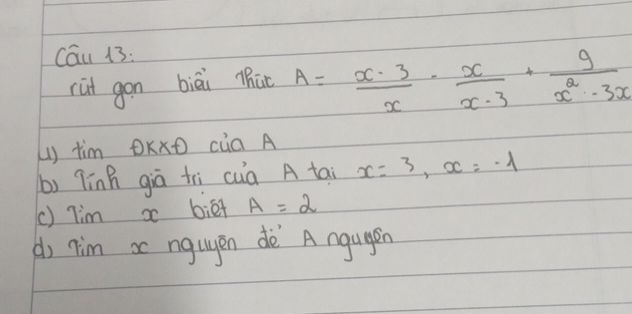 Câu 13:
rút gọn biểu thức A = \frac{x - 3}{x} - \frac{x}{x - 3} + \frac{9}{x^2 - 3x}
a) tìm ĐKXĐ của A
b) Tính giá trị của A tại x = 3, x = -1
c) Tìm x biết A = 2
d) Tìm x nguyên để A nguyên